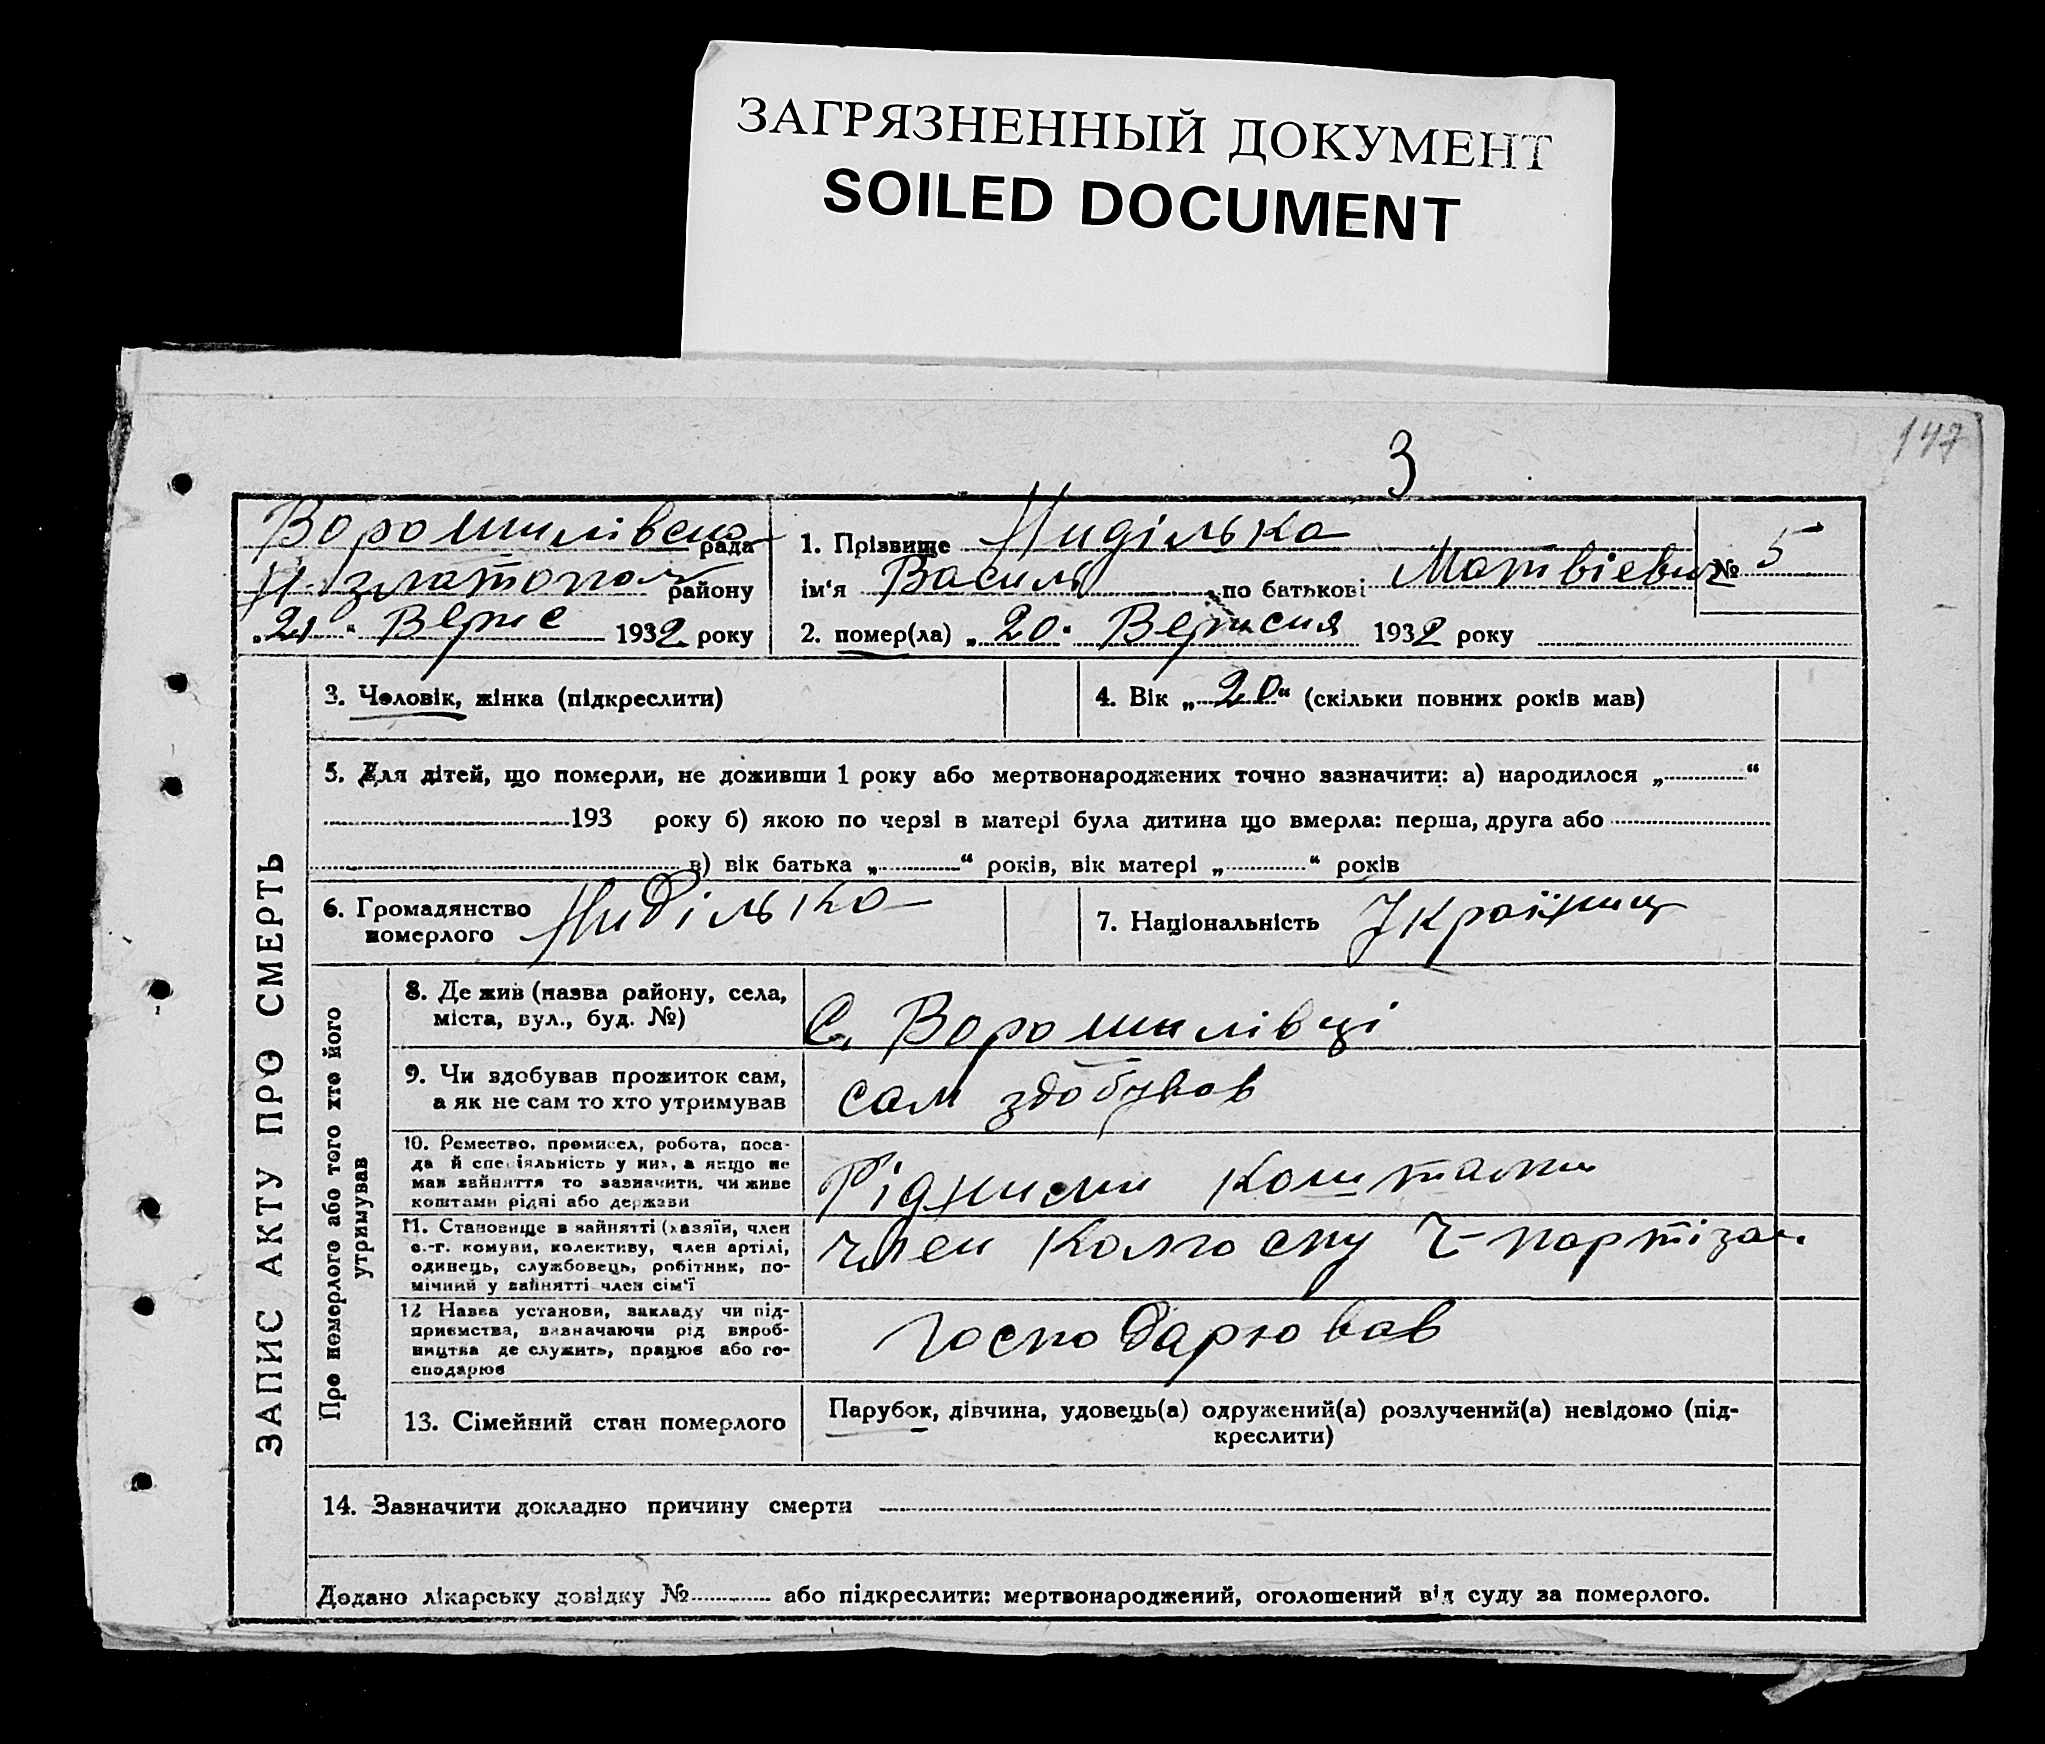 ЗАГРЯЗНЕННЫЙ ДОКУМЕНТ
SOILED DOCUMENT
147
3
Ворошилівська рада
Н златополь району
„21“ Верис 1932 року
1. Прізвище Ниділько
ім‘я Василь по батькові Матвіевич
№ 5
2. помер(ла) „20“ Верисня 1932 року
ЗАПИС АКТУ ПРО СМЕРТЬ
3. Чоловік, жінка (підкреслити)
4. Вік „20“ (скільки повних років мав)
5. Для дітей, що померли, не доживши 1 року або мертвонароджених точно зазначити: а) народилося „ “
193 року б) якою по черзі в матері була дитина що вмерла: перша, друга або
в) вік батька „ “ років, вік матері „ “ років
6. Громадянство
померлого
Ниділько
7. Національність Українец
Про померлого або того хто його
утримував
8. Де жив (назва району, села,
міста, вул., буд. №)
С. Ворошилівці
9. Чи здобував прожиток сам,
а як не сам то хто утримував
сам здобував
10. Ремество, промисел, робота, поса-
да й спеціяльність у них, а якщо не
мав зайняття то зазначити, чи живе
коштами рідні або держави
Рідними коштами
11. Становище в зайнятті (хазяїн, член
с.-г. комуни, колективу, член артілі,
одинець, службовець, робітник, по-
мічний у зайнятті член сім‘ї
член Колгоспу Ч-партізан
12 Назва установи, закладу чи під-
приємства, визначаючи рід вироб-
ництва де служить, працює або го-
сподарює
господарював
13. Сімейний стан померлого
Парубок, дівчина, удовець(а) одружений(а) розлучений(а) невідомо (під-
креслити)
14. Зазначити докладно причину смерти
Додано лікарську довідку № або підкреслити: мертвонароджений, оголошений від суду за померлого.